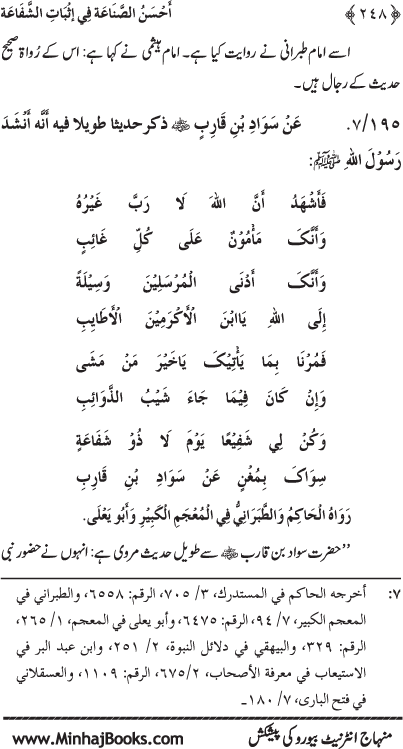 ﴿۲۴۸﴾ أَحْسَنُ الصَّنَاعَة فِي إِثْبَاتِ الشَّفَاعَة
اسے امام طبرانی نے روایت کیا ہے۔ امام ہیثمی نے کہا ہے: اس کے رُواۃ صحیح
حدیث کے رجال ہیں۔
۷/۱۹۵. عَنْ سَوَادِ بْنِ قَارِبٍ ﷺ ذكر حديثا طويلا فيه أَنَّه أَنْشَدَ
رَسُوْلَ اللهِ ﷺ:
فَأَشْهَدُ أَنَّ اللهَ لَا رَبَّ غَيْرُهُ
وَأَنَّکَ مَأْمُوْنٌ عَلَى كُلِّ غَائِبٍ
وَأَنَّکَ أَدْنَى الْمُرْسَلِيْنَ وَسِيْلَةً
إِلَى اللهِ يَاابْنَ الْأَكْرَمِيْنَ الْأَطَايِبِ
فَمُرْنَا بِمَا يَأْتِيْکَ يَاخَيْرَ مَنْ مَشَى
وَإِنْ كَانَ فِيْمَا جَاءَ شَيْبُ الذَّوَائِبِ
وَكُنْ لِي شَفِيْعًا يَوْمَ لَا ذُوْ شَفَاعَةٍ
سِوَاکَ بِمُغْنٍ عَنْ سَوَادِ بْنِ قَارِبِ
رَوَاهُ الْحَاكِمُ وَالطَّبَرَانِيُّ فِي الْمُعْجَمِ الْكَبِيْرِ وَأَبُو يَعْلَى.
’’حضرت سواد بن قارب سے طویل حدیث مروی ہے: انہوں نے حضور نبی
۷: أخرجه الحاكم في المستدرك، ۳/ ۷۰۵، الرقم: ۶۵۵۸، والطبراني في
المعجم الكبير، ۷/ ۹۴، الرقم: ۶۴۷۵، وأبو يعلى في المعجم، ۱/ ۲۶۵،
الرقم: ۳۲۹، والبيهقي في دلائل النبوة، ۲/ ۲۵۱، وابن عبد البر في
الاستيعاب في معرفة الأصحاب، ۲/ ۶۷۵، الرقم: ۱۱۰۹، والعسقلاني
في فتح البارى، ۷/ ۱۸۰۔
منہاج انٹرنیٹ بیورو کی پیشکش www.MinhajBooks.com